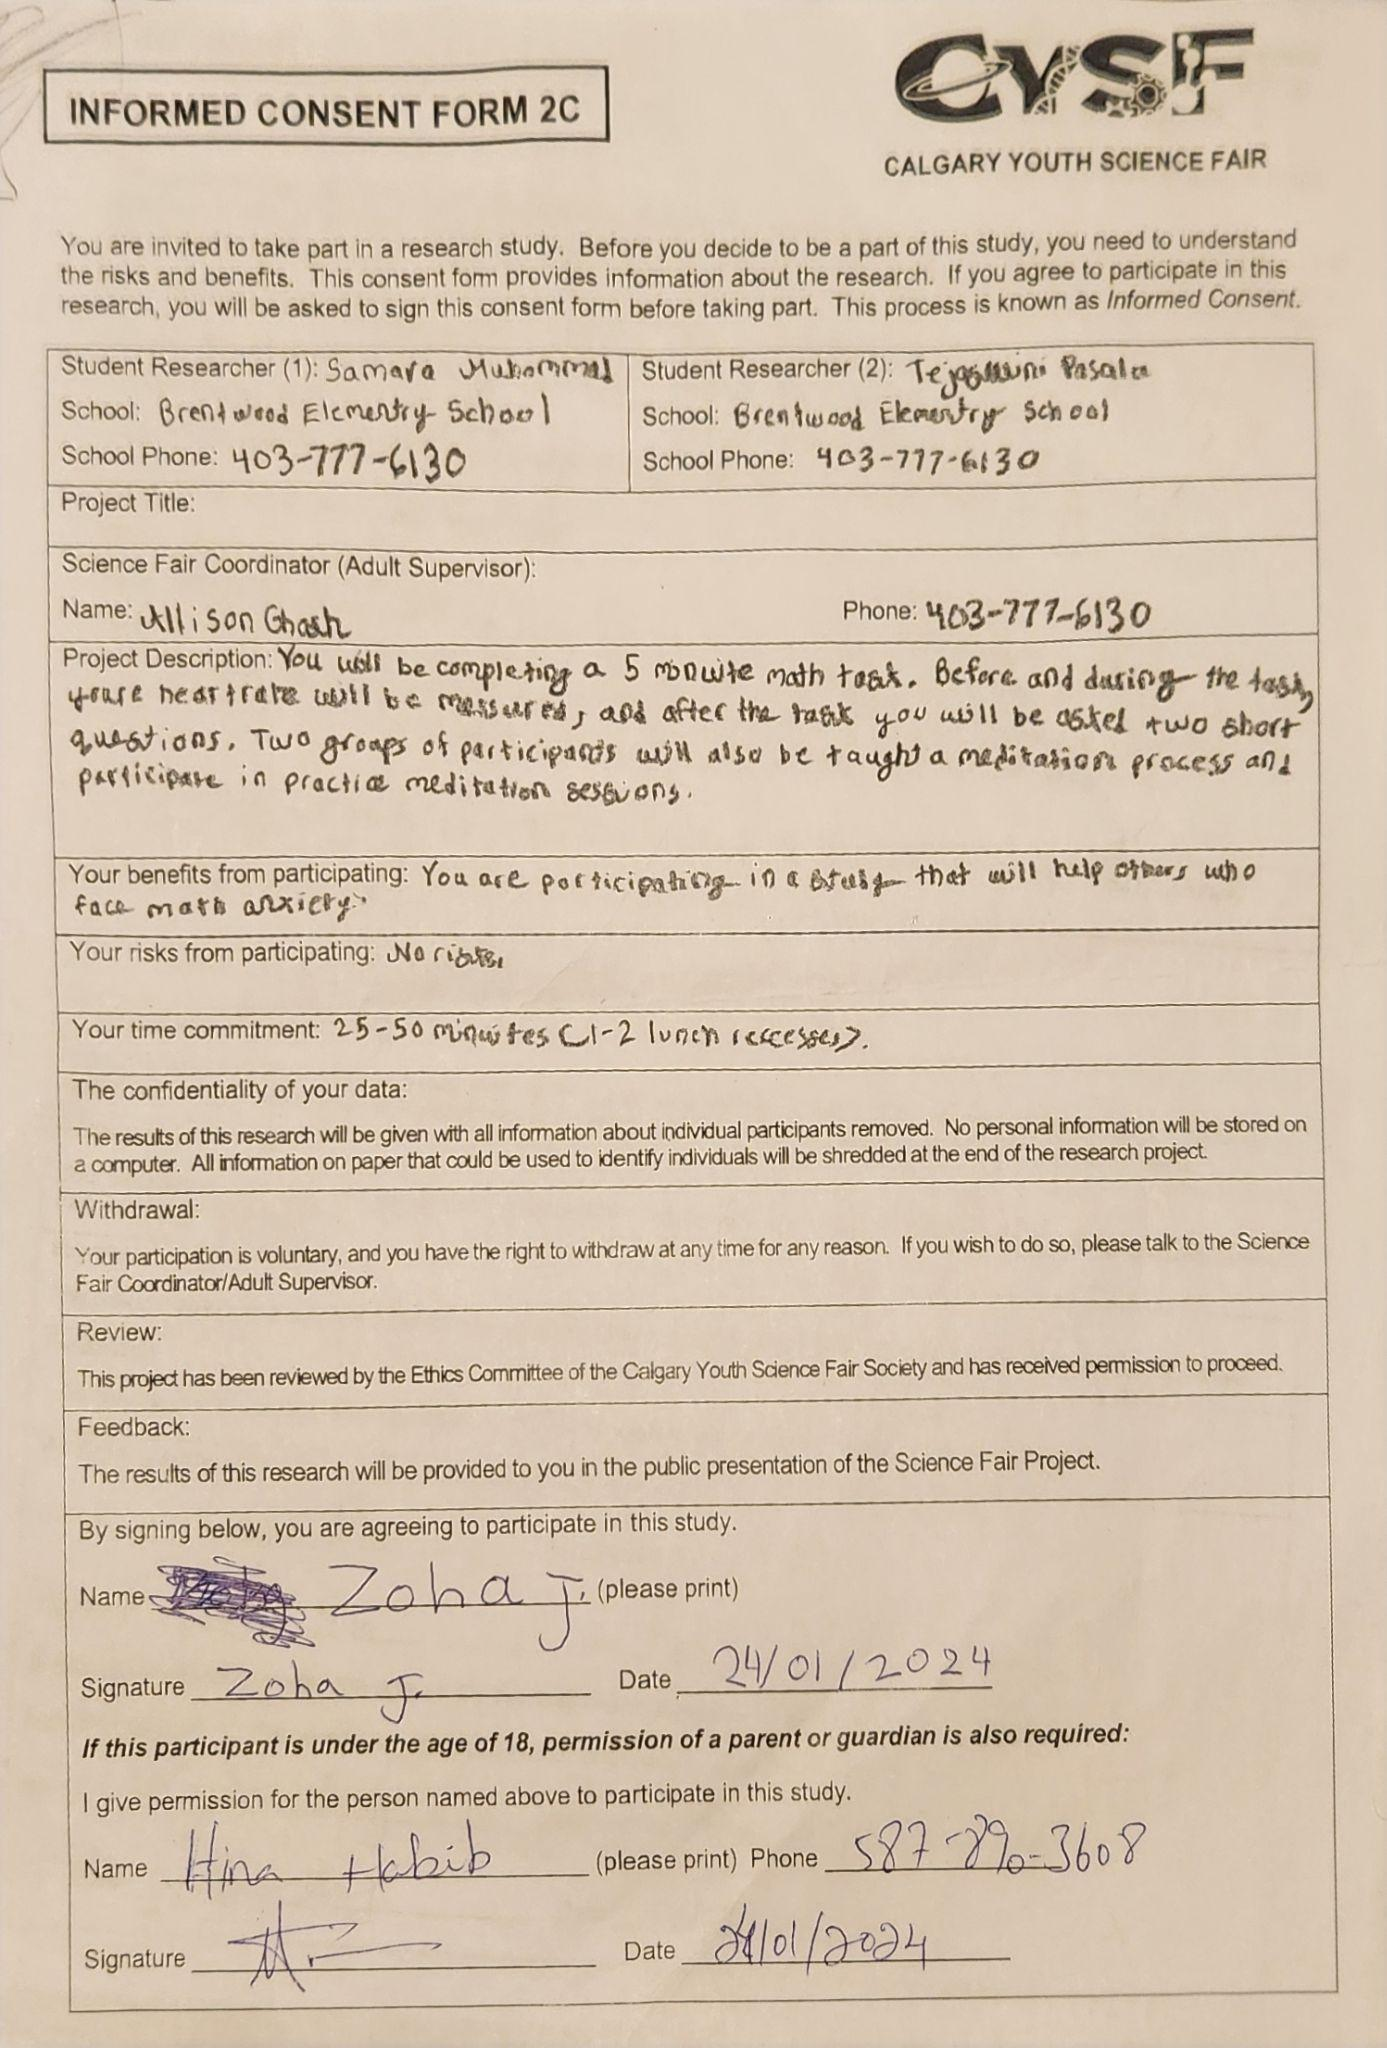 INFORMED CONSENT FORM 2C
CYSF
CALGARY YOUTH SCIENCE FAIR
You are invited to take part in a research study. Before you decide to be a part of this study, you need to understand
the risks and benefits. This consent form provides information about the research. If you agree to participate in this
research, you will be asked to sign this consent form before taking part. This process is known as Informed Consent.
Student Researcher (1): Samara Muhammad
School: Brentwood Elementry School
School Phone: 403-777-6130
Student Researcher (2): Pasala
School: Brentwood Elementry School
School Phone: 403-777-6130
Project Title:
Science Fair Coordinator (Adult Supervisor):
Name: Allison
Phone: 403-777-6130
Project Description: You will be completing a 5 minute math task. Before and during the task,
youre heartrate will be messured, and after the task you will be asked two short
questions. Two groups of participants will also be taught a meditation process and
participate in practice meditation sessions.
Your benefits from participating: You are participating in a study that will help others who
face math anxiety.
Your risks from participating: No risks.
Your time commitment: 25-50 minutes (1-2 lunch reccesses).
The confidentiality of your data:
The results of this research will be given with all information about individual participants removed. No personal information will be stored on
a computer. All information on paper that could be used to identify individuals will be shredded at the end of the research project.
Withdrawal:
Your participation is voluntary, and you have the right to withdraw at any time for any reason. If you wish to do so, please talk to the Science
Fair Coordinator/Adult Supervisor.
Review:
This project has been reviewed by the Ethics Committee of the Calgary Youth Science Fair Society and has received permission to proceed.
Feedback:
The results of this research will be provided to you in the public presentation of the Science Fair Project.
By signing below, you are agreeing to participate in this study.
Name Zoha J. (please print)
Signature Zoha J. Date 24/01/2024
If this participant is under the age of 18, permission of a parent or guardian is also required:
I give permission for the person named above to participate in this study.
Name Hina Habib (please print) Phone 587-890-3608
Signature Date 24/01/2024